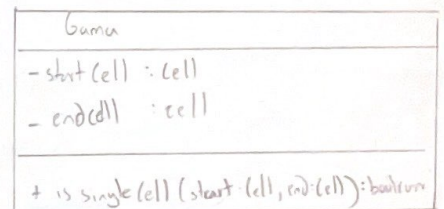 Gamer
- start Cell : Cell
- endCell : cell
+ is single Cell (start Cell, end Cell) : boolean